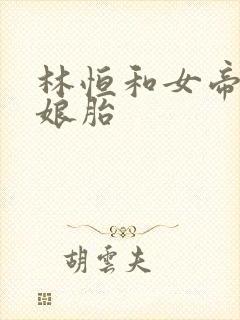 林恒和女帝
娘胎
胡云夫